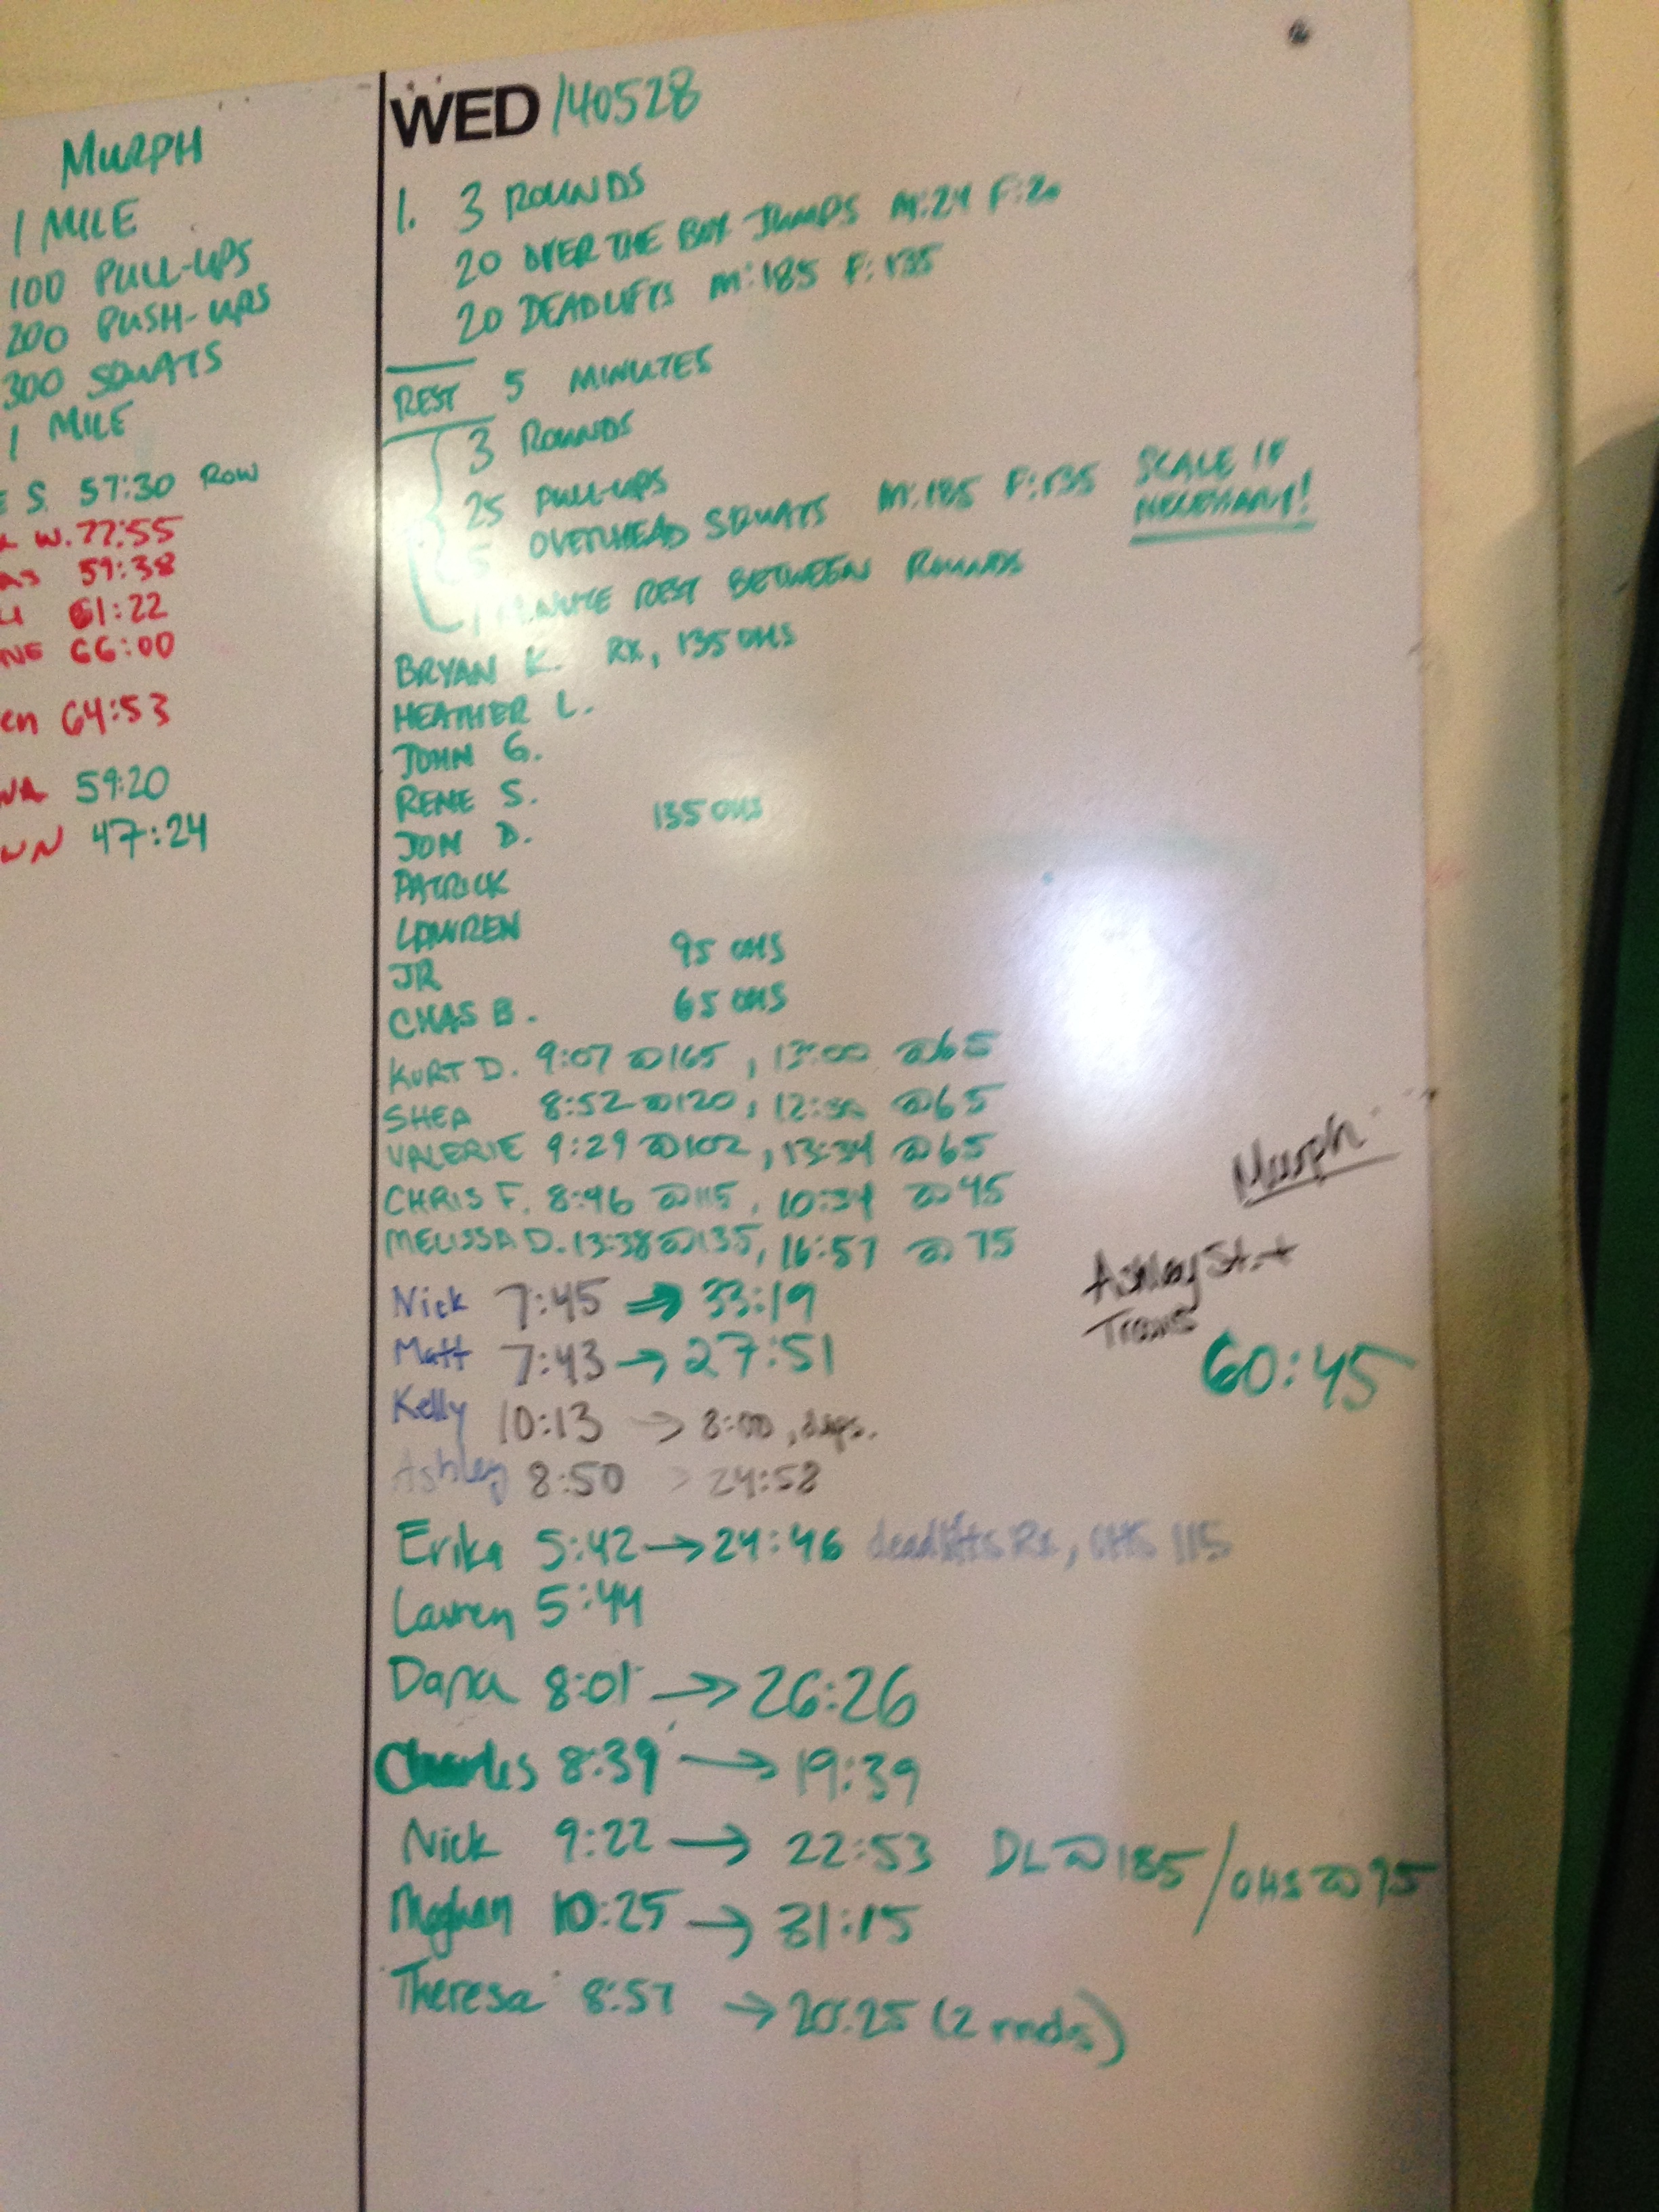 MURPH
1 MILE
100 PULL-UPS
200 PUSH-UPS
300 SQUATS
1 MILE
E S. 57:30 ROW
W. 77:55
AS 59:38
61:22
NE 66:00
en 64:53
59:20
WN 47:24
WED 140528
1. 3 ROUNDS
20 OVER THE BOX JUMPS M:24 F:20
20 DEADLIFTS M:185 F:135
REST 5 MINUTES
3 ROUNDS
25 PULL-UPS
OVERHEAD SQUATS M:185 F:135 SCALE IF NECESSARY!
MINUTE REST BETWEEN ROUNDS
BRYAN K. RX, 135 OHS
HEATHER L.
JOHN G.
RENE S.
JON D. 135 OHS
PATRICK
LAUREN
JR 95 OHS
CHAS B. 65 OHS
KURT D. 9:07 @165, 13:00 @65
SHEA 8:52 @120, @65
VALERIE 9:29 @102, 13:34 @65
CHRIS F. 8:46 @115, 10:34 @45
MELISSA D. 13:38 @135, 16:57 @75
Murph
Ashley St. +
Travis
60:45
Nick 7:45 → 33:19
Matt 7:43 → 27:51
Kelly 10:13 →
Ashley 8:50 > 24:58
Erika 5:42 → 24:46 deadlifts Rx, OHS 115
Lauren 5:44
Dana 8:01 → 26:26
Charles 8:39 → 19:39
Nick 9:22 → 22:53 DL @ 185 / OHS @ 95
Meghan 10:25 → 31:15
Theresa 8:57 → 20:25 (2 rnds)